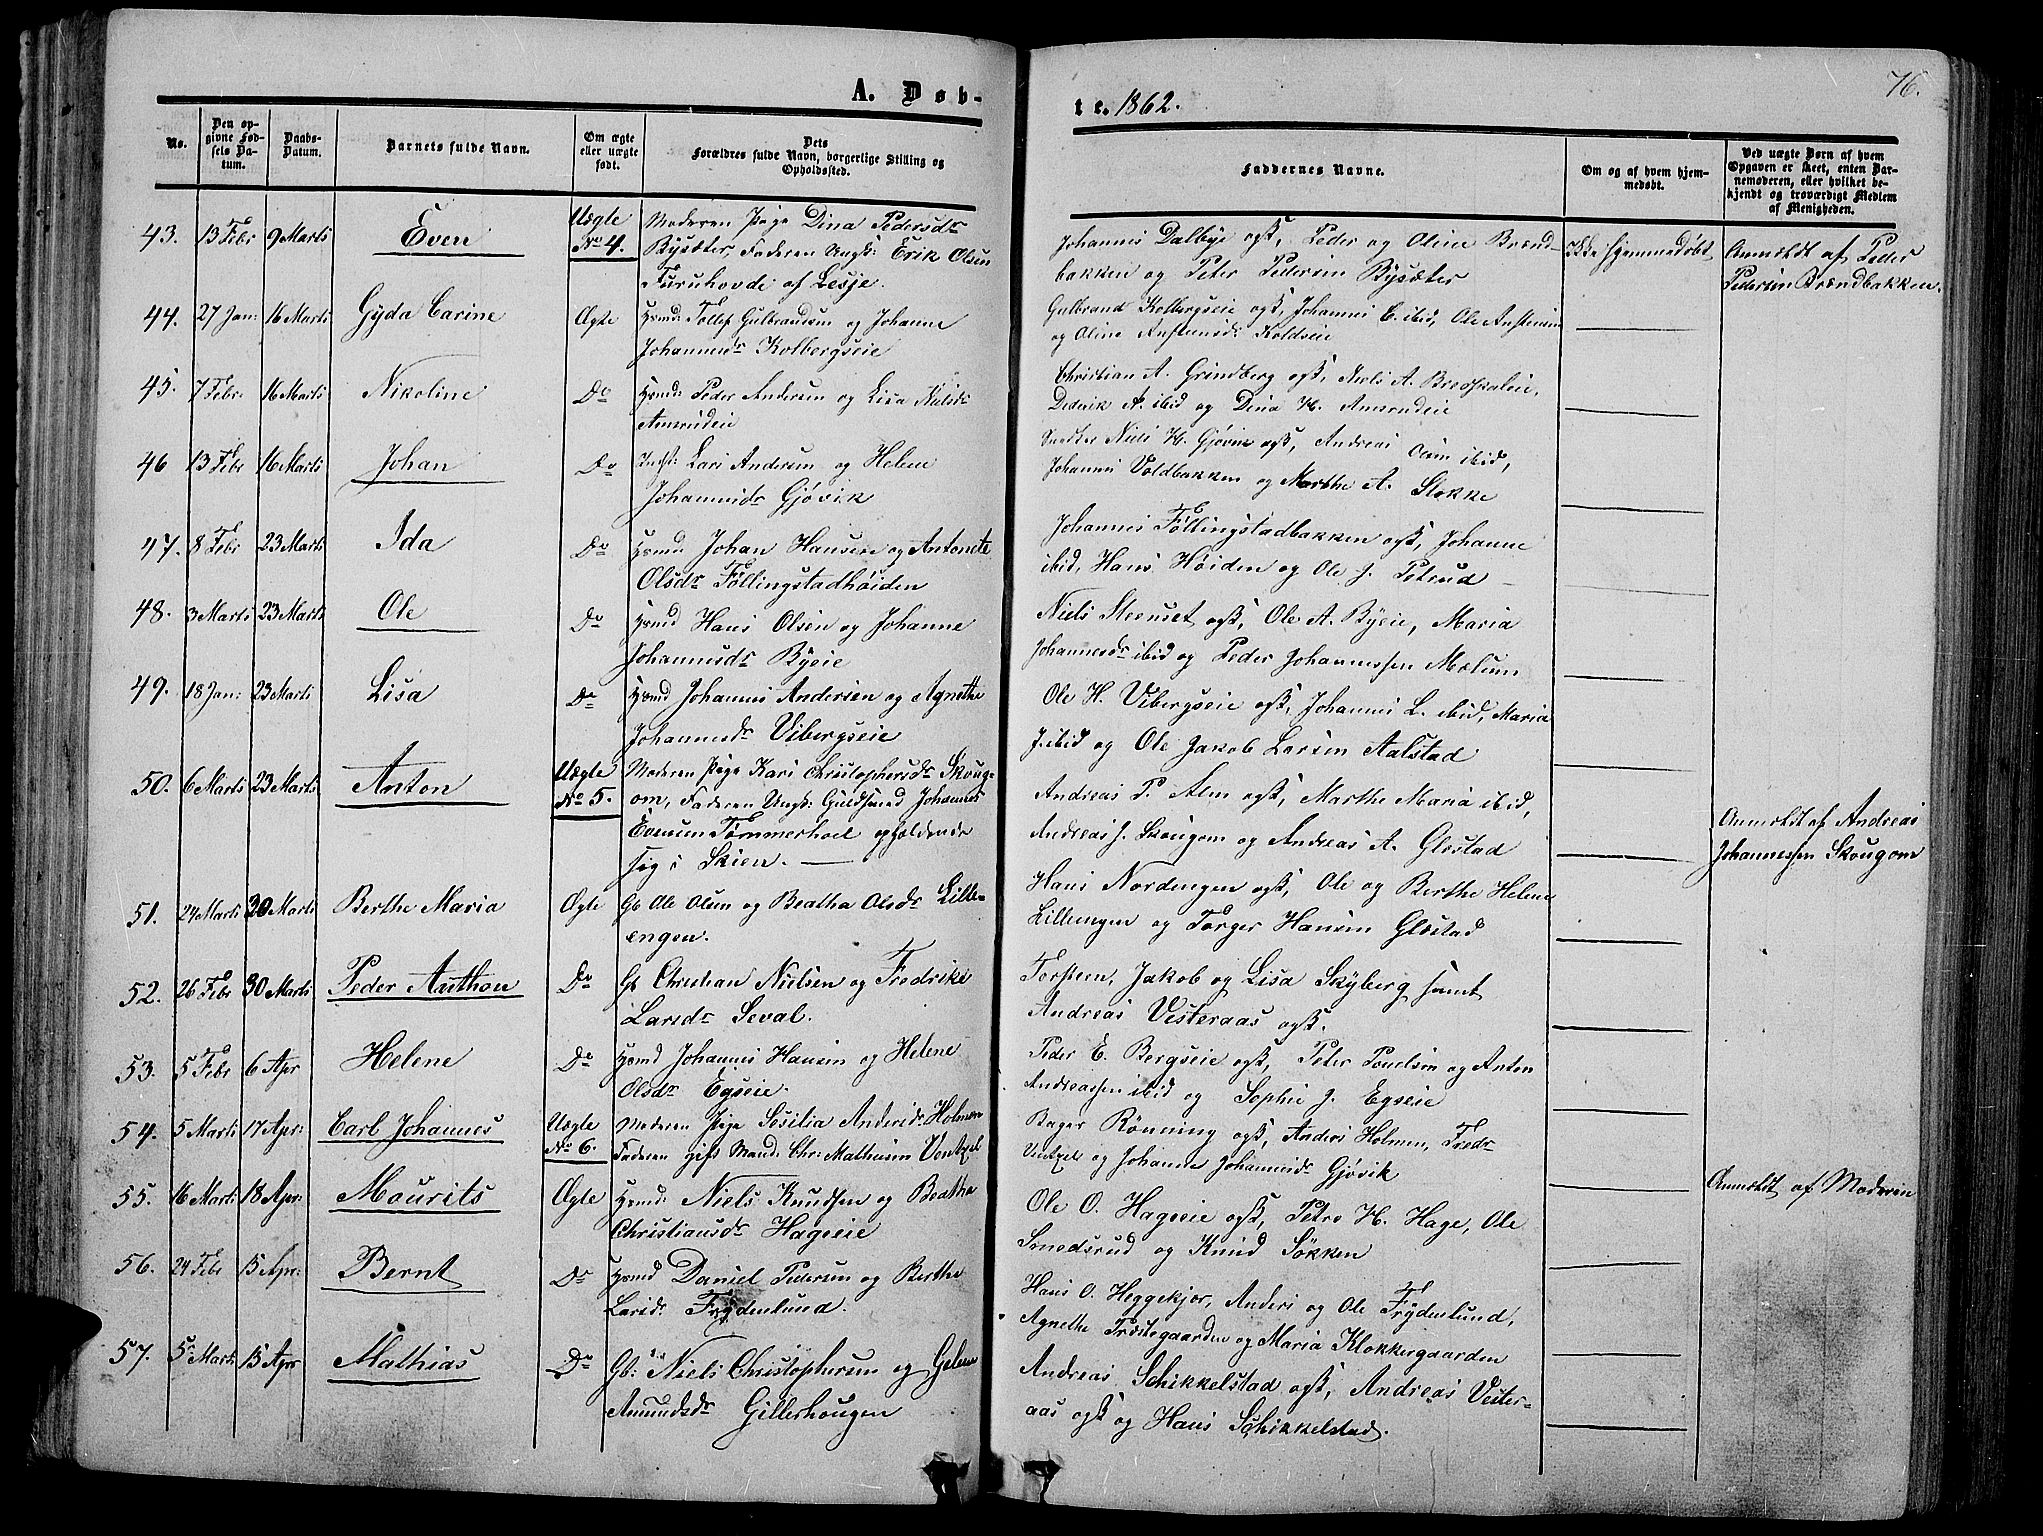 76.
A. Døb-
te. 1862.
No.
Den op-
givne Fød-
sels Da-
tum.
Daabs-
Datum.
Barnets fulde Navn.
Om ægte
eller uægte
født.
Dets
Forældres fulde Navn, borgerlige Stilling og
Opholdssted.
Faddernes Navne.
Om og af hvem hjem-
medøbt.
Ved uægte Børn af hvem
Opgaven er skeet, enten Bar-
nemoderen, eller hvilket be-
kjendt og troværdigt Medlem
af Menigheden.
43. 13 Febr 9 Marts Even Uægte No 4. Moderen Pige Dina Pedersdr
Bysæter, Faderen Ungk: Erik Olsen
Furuhovde af Lesje.
Johannes Dalbye ogst, Peder og Oline Brænd-
bakken og Peter Pedersen Bysæter
ikke hjemmedøbt
Anmeldt af Peder
Pedersen Brændbakken.
44. 27 Jan: 16 Marts Gyda Carine Ægte Hsmd: Tollef Gulbrandsen og Johanne
Johannesdr Kolbergseie
Gulbrand Kolbergseie ogst, Johannes E. ibid, Ole Anstensen
og Oline Anstensdr: Koldseie
45. 7 Febr. 16 Marts Nikoline Do Hsmd: Peder Andersen og Lisa Nielsdr
Amrudeie
Christian A. Grindberg ogst, Niels A.
Dederik A. ibid og Dina H. Amrudeie
46 13 Febr 16 Marts Johan Do Indst: Lars Andersen og Helene
Johannesdr Gjøvik
Snedker Niels H. Gjøvik ogst, Andreas Olsen ibid,
Johannes Voldbakken og Marthe A. Slokke
47. 8 Febr 23 Marts Ida Do Hsmd: Johan Hansen og Antonete
Olsdr Føllingstadhøiden
Johannes Føllingstadbakken ogst, Johanne
ibid, Hans Høiden og Ole J. Petrud
48. 3 Marts 23 Marts Ole Do Hsmd Hans Olsen og Johanne
Johannesdr Byeie
Niels Steenset ogst, Ole A. Byeie, Maria
Johannesdr ibid og Peder Johannessen Mælum
49. 18 Jan: 23 Marts Lisa Do Hsmd Johannes Andersen og Agnethe
Johannesdr Vibergseie
Ole H. Vibergseie ogst, Johannes L. ibid, Maria
J. ibid og Ole Jakob Larsen Aalstad
50. 6 Marts 23 Marts Anton Uægte No 5. Moderen Pige Kari Christophersdr Skoug-
om, Faderen Ungk: Guldsmed Johannes
Evensen Tømmerhoel opholdende
sig i Skien.
Andreas P. Alm ogst, Marthe Maria ibid,
Andreas J. Skougom og Andreas A. Gløstad
Anmeldt af Andreas
Johannessen Skougom
51. 24 Marts 30 Marts Berthe Maria Ægte Gb Ole Olsen og Beatha Olsdr Lille-
engen.
Hans Nordengen ogst, Ole og Berthe Helene
Lilleengen og Torger Hansen Gløstad
52. 26 Febr 30 Marts Peder Anthon Do Gb Christian Nielsen og Fredrike
Larsdr Seval.
Torsteen, Jakob og Lisa Skyberg samt
Andreas Vesteraas ogst.
53. 5 Febr 6 Apr Helene Do Hsmd Johannes Hansen og Helene
Olsdr Egseie
Peder E. Bergseie ogst, Peter Poulsen og Anton
Andreassen ibid og Sophie J. Egseie
54. 5 Marts 17 Apr: Carl Johannes Uægte No 6. Moderen Pige Sesilia Andersdr Holmen
Faderen gift Mand: Chr: Mathiesen Ventzel
Bager Rønning ogst, Anders Holmen, Fredr
Ventzel og Johanne Johannesdr Gjøvik
Anmeldt af Moderen
55. 16 Marts 18 Apr: Mourits Ægte Hsmd: Niels Knudsen og Beatha
Christiansdr Hageeie
Ole O. Hageeie ogst, Petro H. Hage, Ole
Smedsrud og Knud Søkken
56. 24 Febr 13 Apr: Bernt Do Hsmd Daniel Pedersen og Berthe
Larsdr Frydenlund.
Hans O. Heggekjær, Anders og Ole Frydenlund,
Agnethe Præstegaarden og Maria Klokkergaarden
57. 5 Marts 13 Apr Mathias Do Gb: Niels Christophersen og Helene
Amundsdr Gillerhougen
Andreas Schikkelstad ogst, Andreas Vester-
aas ogst og Hans Schikkelstad.